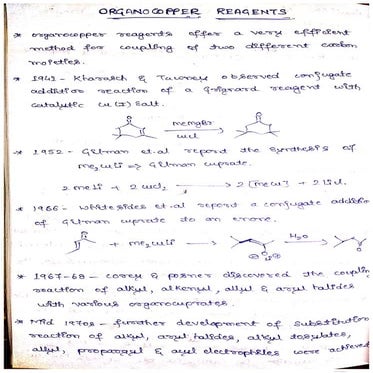 ORGANOCOPPER REAGENTS
* organocopper reagents offer a very efficient
method for coupling of two different carbon
moieties.
* 1941 - Kharasch & Tawney observed conjugate
addition reaction of a Grignard reagent with
catalytic Cu(I) salt.
MeMgBr
CuCl
* 1952 - Gilman et.al report the synthesis of
Me2CuLi => Gilman cuprate.
2 MeLi + 2 CuI2 → 2 [MeCu] + 2 LiI.
* 1966 - Whitesides et.al report a conjugate addition
of Gilman cuprate to an enone.
+ Me2CuLi → H2O
* 1967-68 - Corey & Posner discovered the coupling
reaction of alkyl, alkenyl, allyl & aryl halides
with various organocuprates.
* Mid 1970s - further development of substitution
reaction of alkyl, aryl halides, alkyl tosylates,
allyl, propargyl & acyl electrophiles were achieved